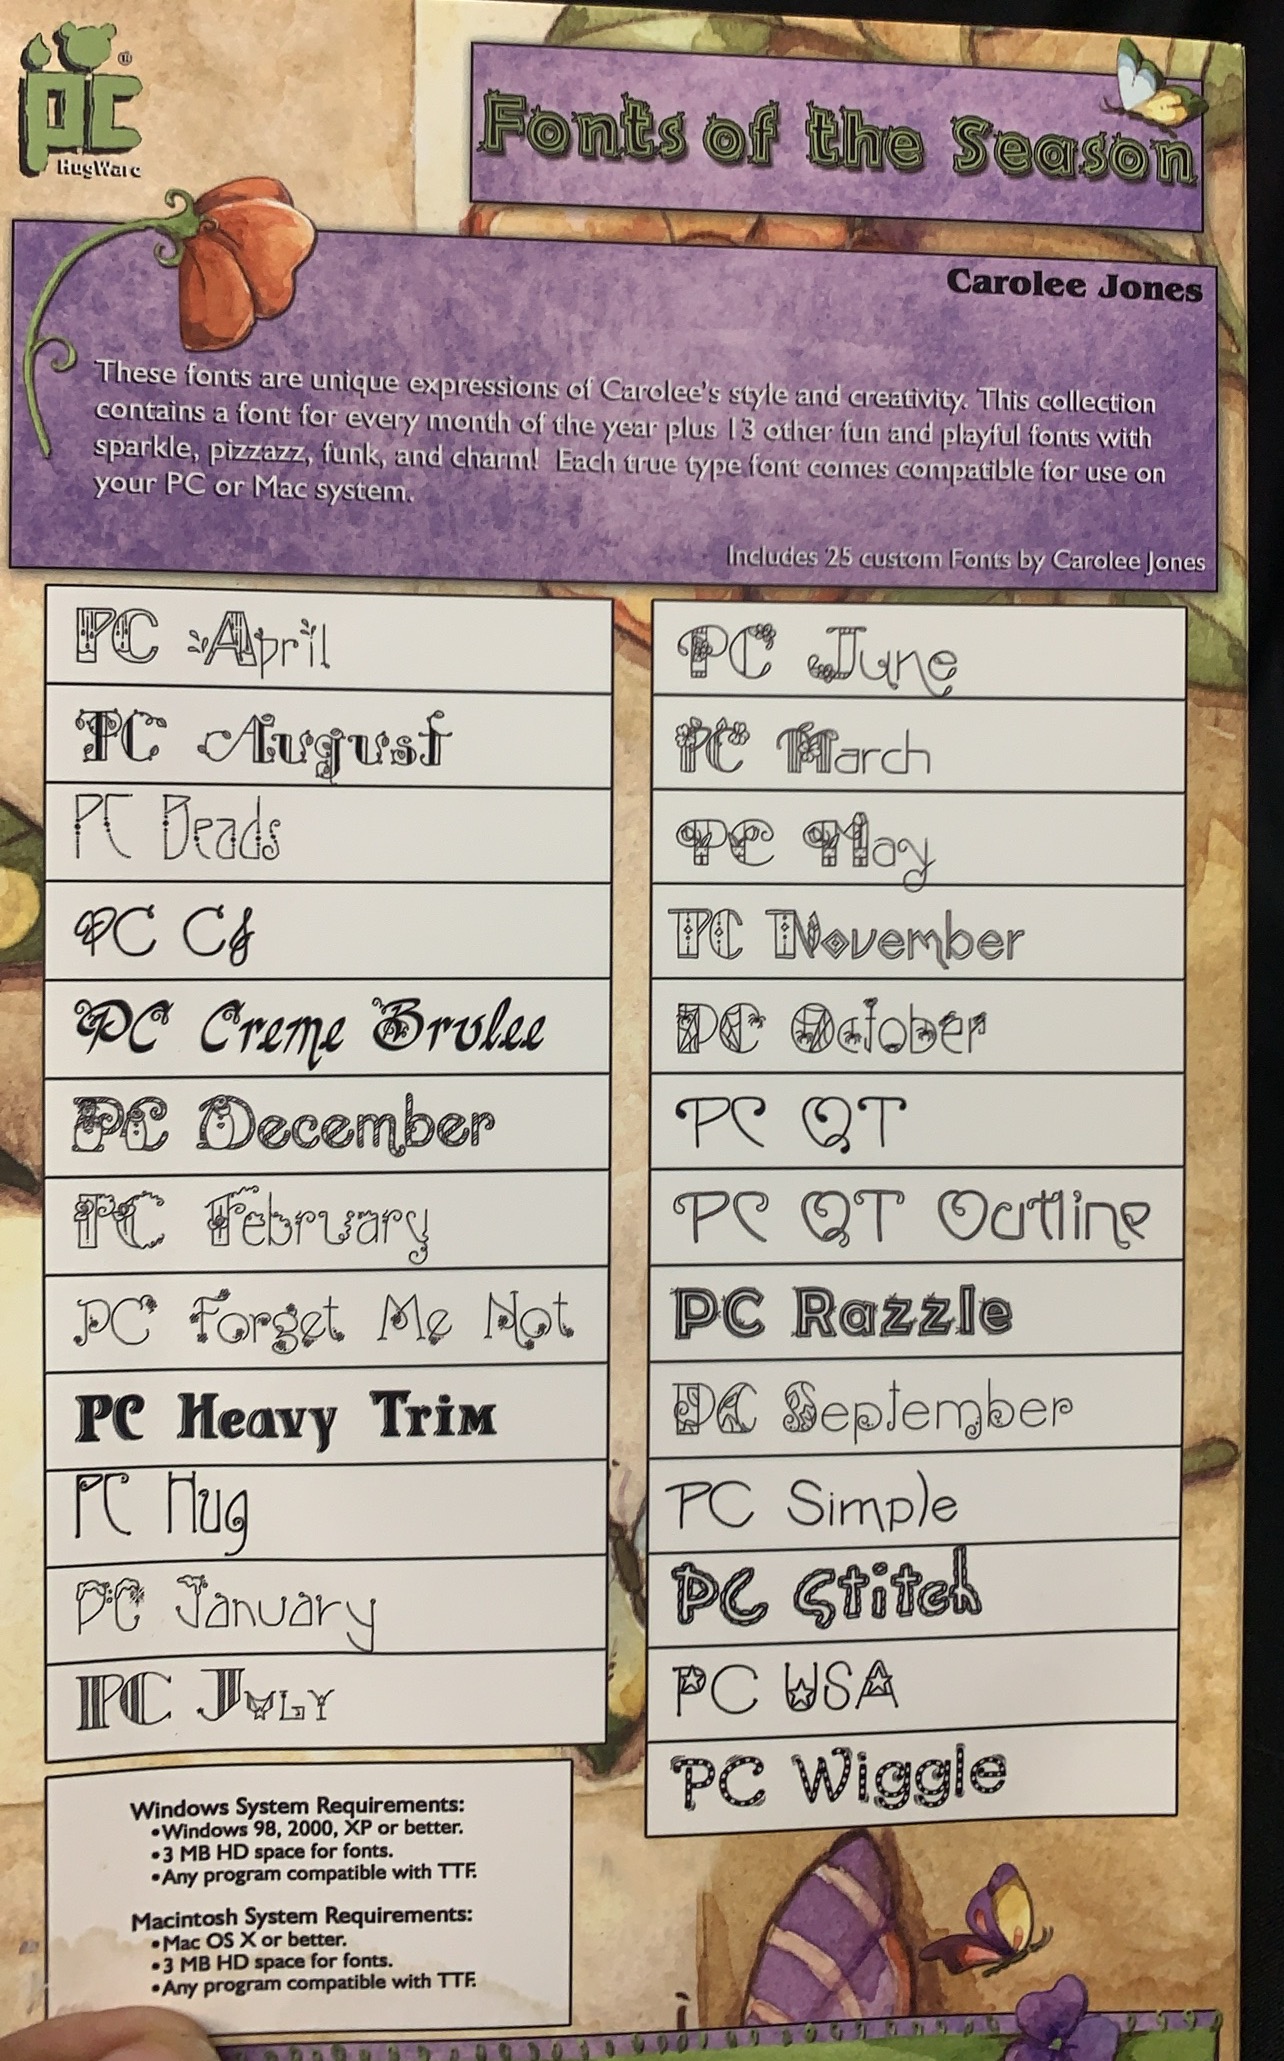 PC
HugWare
Fonts of the Season
Carolee Jones
These fonts are unique expressions of Carolee's style and creativity. This collection
contains a font for every month of the year plus 13 other fun and playful fonts with
sparkle, pizzazz, funk, and charm! Each true type font comes compatible for use on
your PC or Mac system.
Includes 25 custom Fonts by Carolee Jones
PC April
PC August
PC Beads
PC CJ
PC Creme Brulee
PC December
PC February
PC Forget Me Not
PC Heavy Trim
PC Hug
PC January
PC July
PC June
PC March
PC May
PC November
PC October
PC QT
PC QT Outline
PC Razzle
PC September
PC Simple
PC Stitch
PC USA
PC Wiggle
Windows System Requirements:
•Windows 98, 2000, XP or better.
•3 MB HD space for fonts.
•Any program compatible with TTF.
Macintosh System Requirements:
•Mac OS X or better.
•3 MB HD space for fonts.
•Any program compatible with TTF.